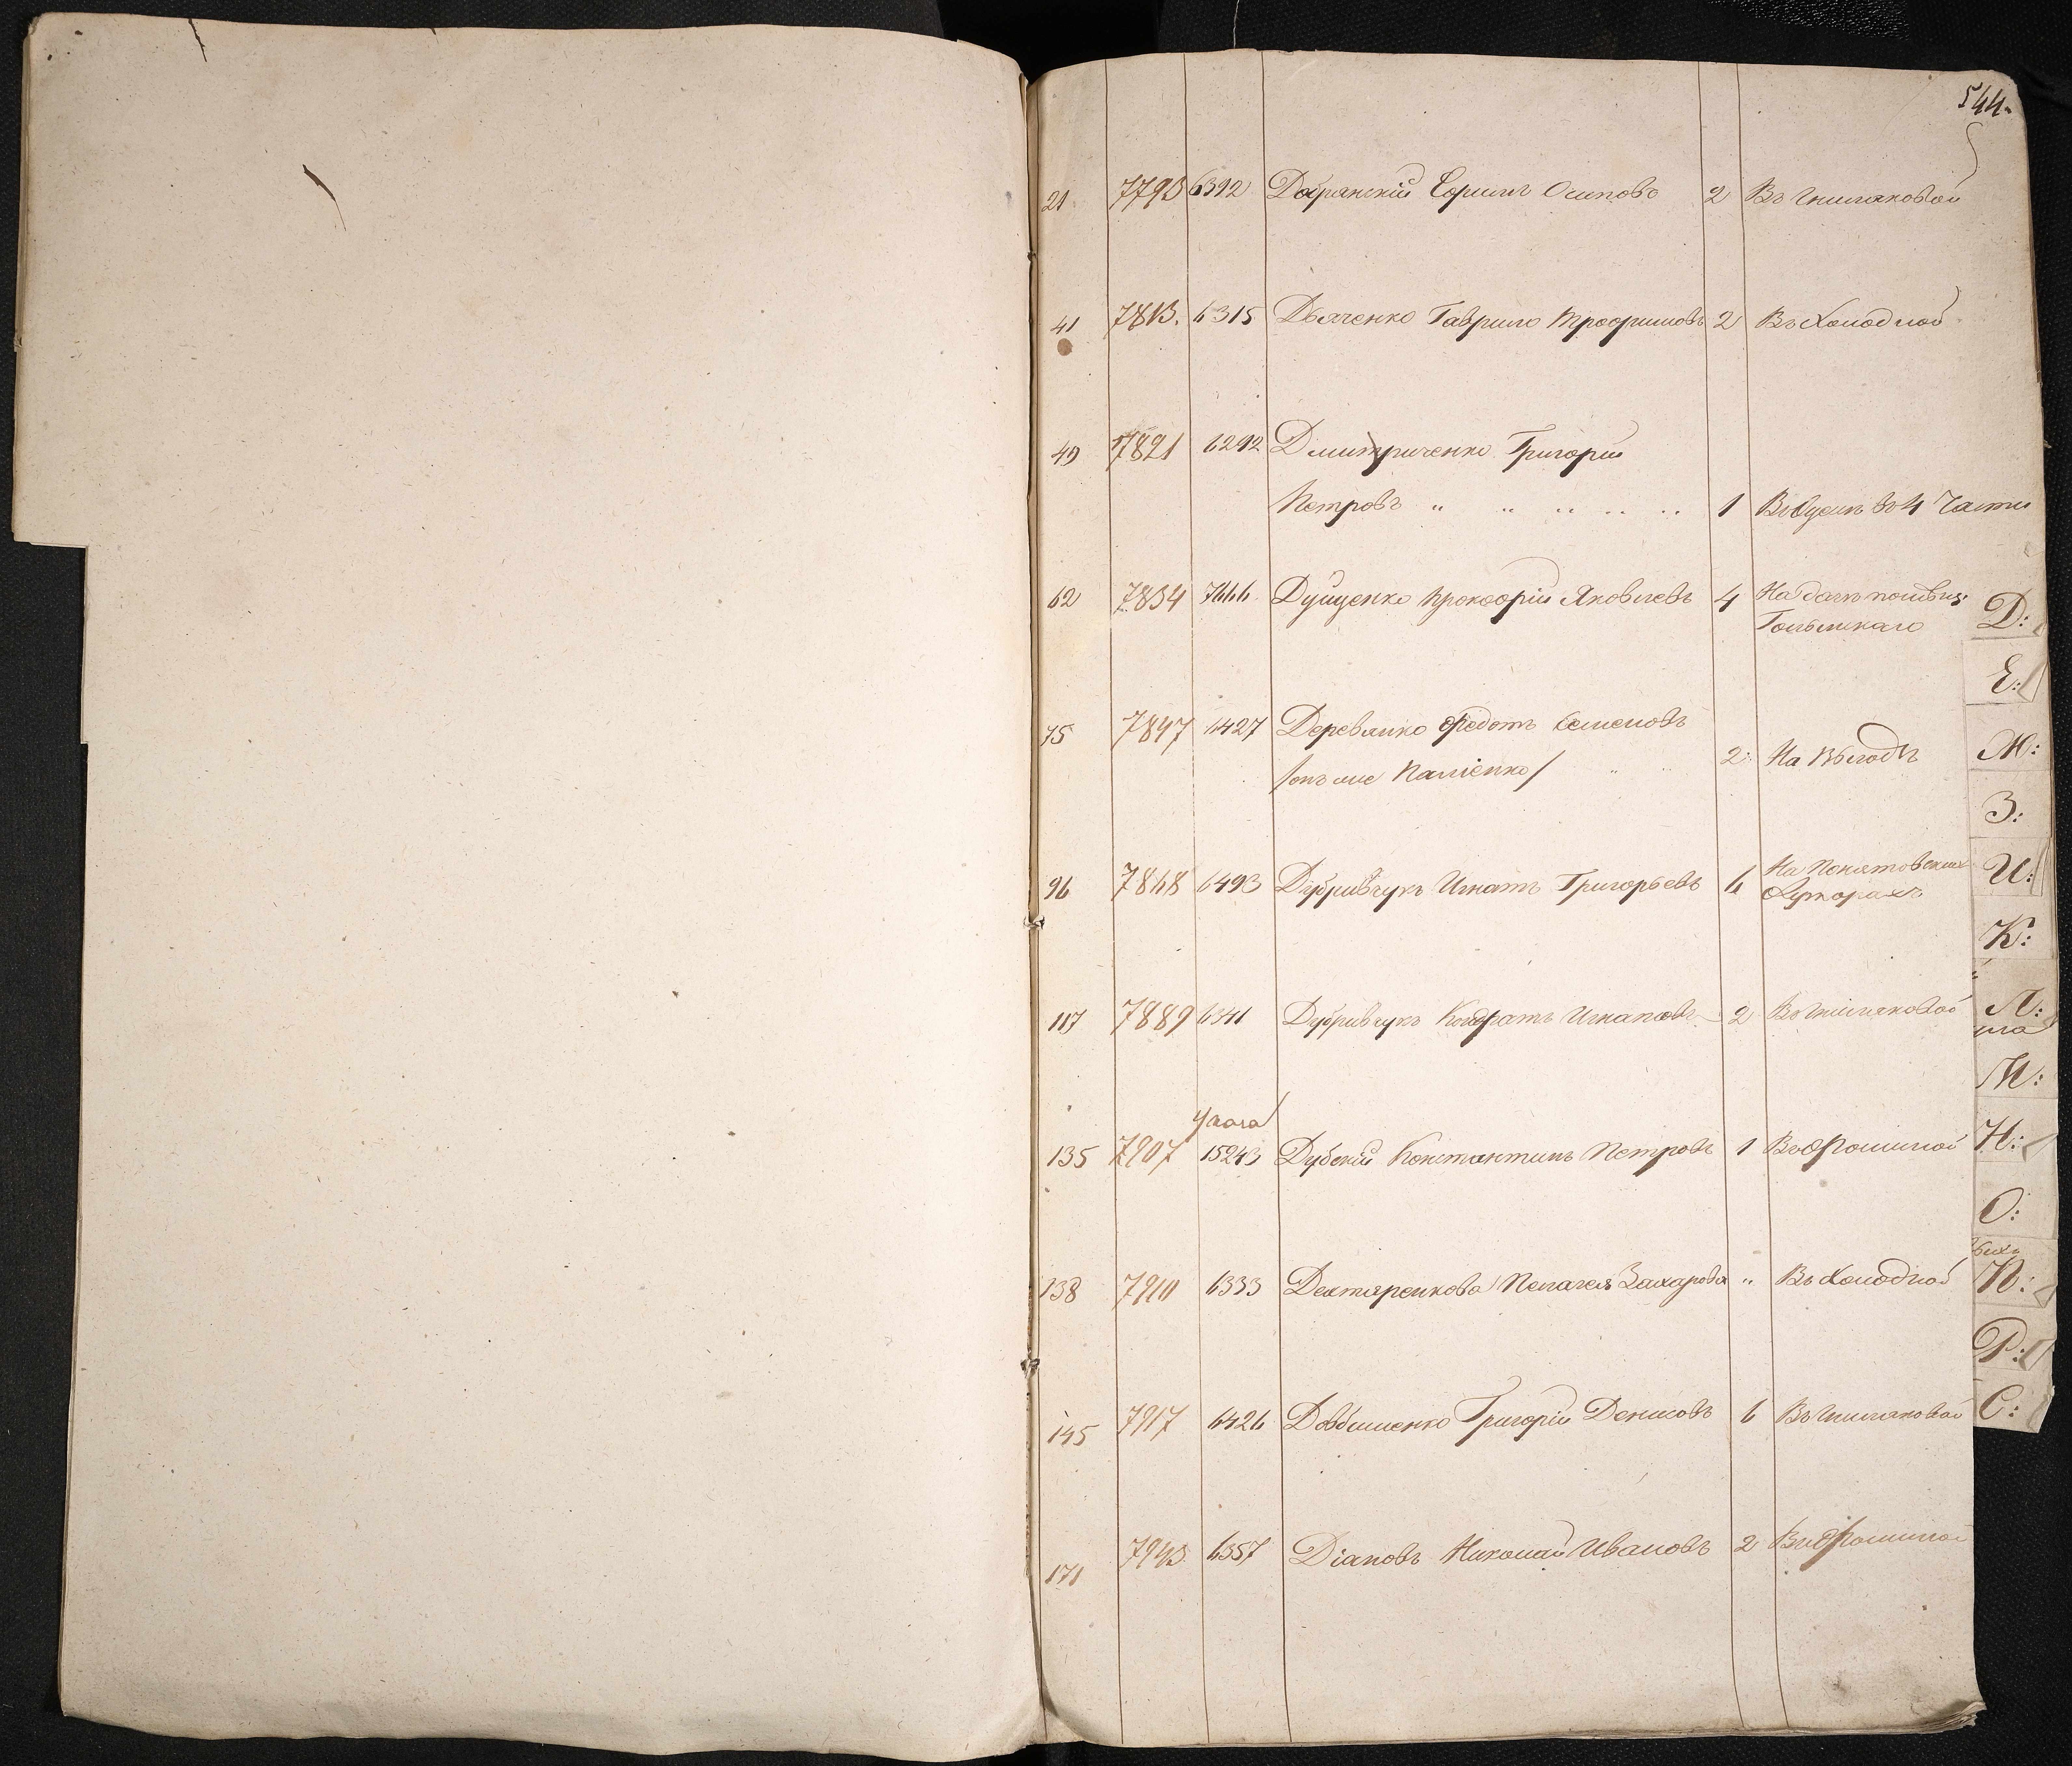 544.
21 7793 6392 Добранскій Ефимъ Осиповъ 2 Въ Гниляковой
41 7813. 6315 Дьяченко Гаврило Трофимовъ 2 Въ Холодной
49 7821 6292 Дмитриченко Григорій
Петровъ " " " " " 1 4 Части
62 7834 7666 Прокофій Яковлевъ 4 На дачѣ
75 7847 6427 Деревянко Федотъ Семеновъ
/онъ же 2: На Выгодѣ
96 7868 6493 Дубривчукъ Игнатъ Григорьевъ 6 На Понятовскихъ
Хуторахъ
117 7889 6341 Дубривчукъ Кондратъ Игнатовъ 2 Въ Гниляковой
135 7907 15243 Дубскій Константинъ Петровъ 1 Въ Фоминой
138 7910 6333 Дехтяренкова Пелагея Захарова " Въ Холодной
145 7917 6426 Довбишенко Григорій Денисовъ 6 Въ Гниляковой
171 7943 6357 Діановъ Николай Ивановъ 2 Въ Фоминой
Д:
Е:
Ж:
З:
И:
К:
Л:
М:
Н:
О:
П:
Р:
С: